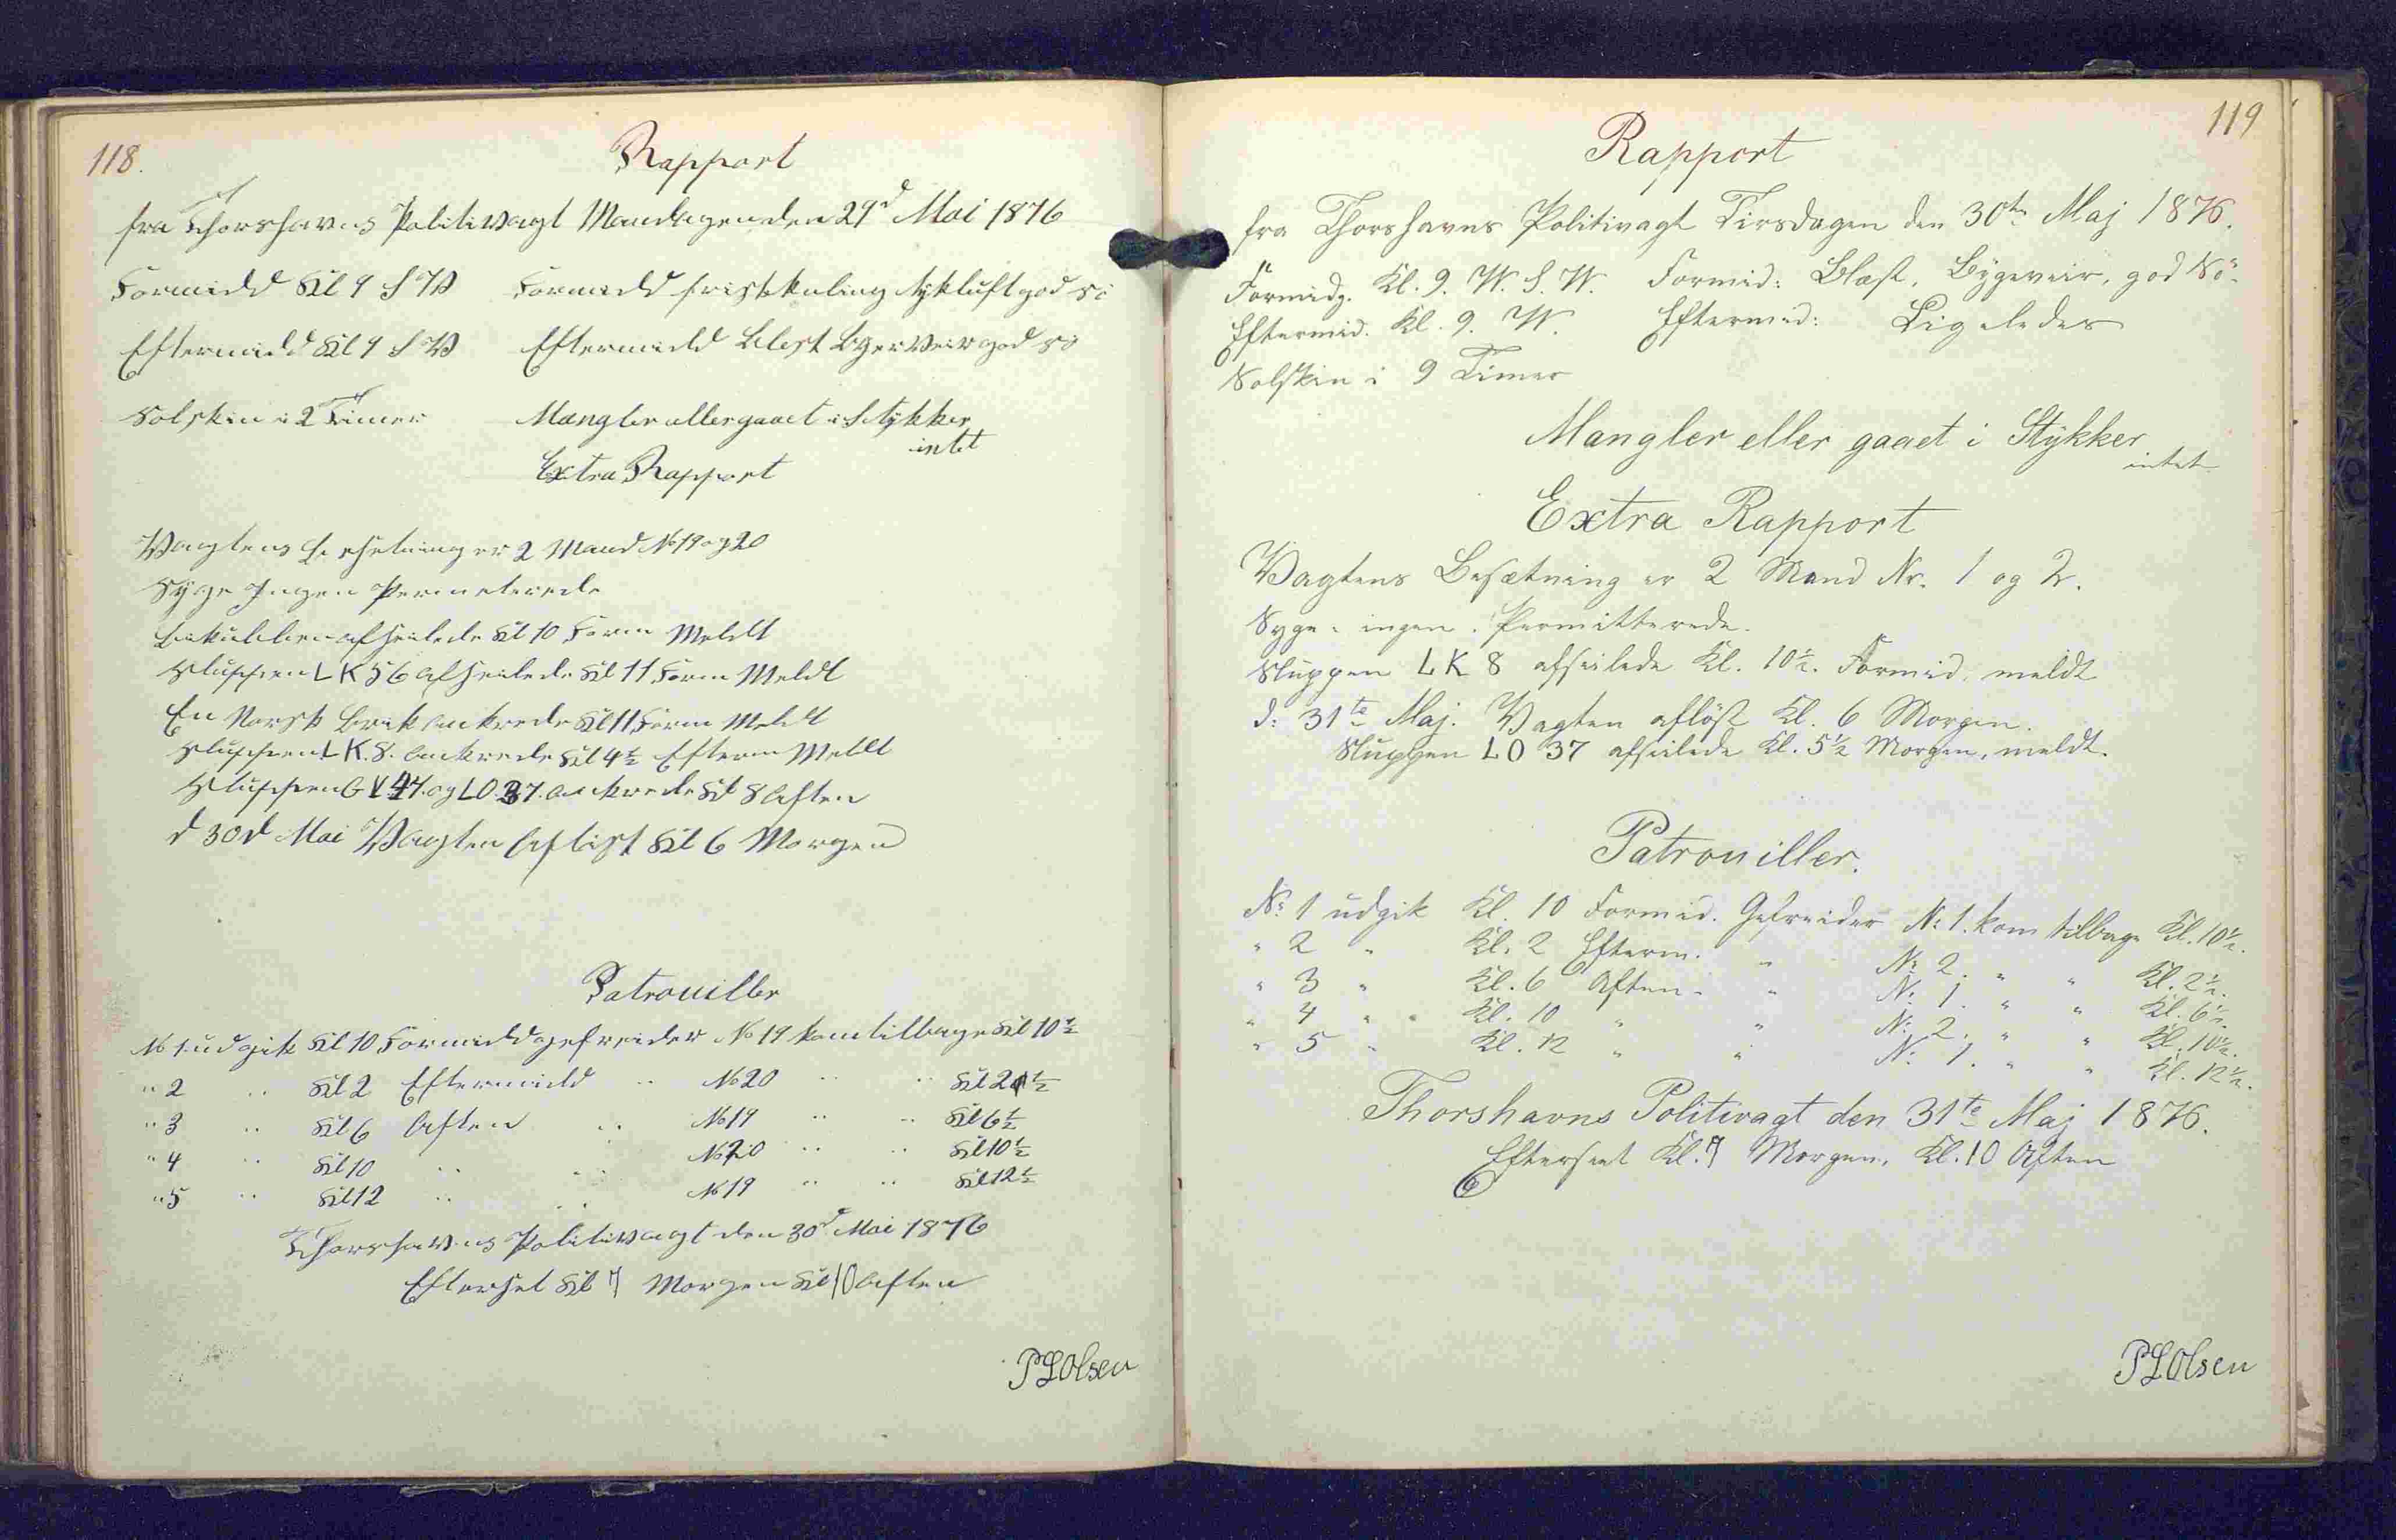 118.
Rapport
fra Thorshavns Politivagt Mandagen den 29d Mai 1876
Formidd Kl 9 S W Formidd frisk kuling tykluft god sö
Eftermidd Kl 9 S W Eftermidd Blest Byer Veir god sö
Solskin i 2 Timer Mangler eller gaaet i Stykker
intet
Extra Rapport
Vagtens Besetning er 2 Mand No 19 og 20
Syge Ingen Permeterede
afseilede Kl 10 Form Meldt
Sluppen LK 56 Afseilede Kl 11 Form Meldt
En Norsk Brik Ankrede Kl 11 Form Meldt
Sluppen LK. 8. Ankrede Kl 4½ Efterm Meldt
Sluppen GV 47. og LO. 37. Ankrede Kl 8 Aften
d 30d Mai Vagten Aflöst Kl 6 Morgen
Patrouiller
No 1 udgik Kl 10 Formidd gefreider No 19 kom tilbage Kl 10½
" 2 " Kl 2 Eftermidd " No 20 " " Kl 2½
" 3 " Kl 6 Aften " No 19 " " Kl 6½
" 4 " Kl 10 " " No 20 " " Kl 10½
" 5 " Kl 12 " " No 19 " " Kl 12½
Thorshavns Politivagt den 30d Mai 1876
Efterset Kl 7 Morgen Kl 10 Aften
PLOlsen
119
Rapport
fra Thorshavns Politivagt Tirsdagen den 30te Maj 1876.
Formidg. Kl. 9. W. S. W. Formid: Blæst, Bygeveir, god Sö.
Eftermid. Kl. 9. W. Eftermid: Ligeledes
Solskin i 9 Timer
Mangler eller gaaet i Stykker
intet
Extra Rapport
Vagtens Besætning er 2 Mand Nr. 1 og 2.
Syge: ingen. Permitterede.
Sluppen LK 8 afseilede Kl. 10½. Formid. meldt
d: 31te Maj. Vagten aflöst Kl. 6 Morgen.
Sluppen LO 37 afseilede Kl. 5½ Morgen, meldt.
Patrouiller.
No 1 udgik Kl. 10 Formid. Gefreider No 1. kom tilbage Kl. 10½.
" 2 " Kl. 2 Efterm. " No 2. " " Kl. 2½.
" 3 " Kl. 6 Aften. " No 1. " " Kl. 6½.
" 4 " " Kl. 10 " " No 2. " " Kl. 10½.
" 5 " Kl. 12 " " No 1. " " Kl. 12½.
Thorshavns Politivagt den 31te Maj 1876.
Efterseet Kl. 7 Morgen, Kl. 10 Aften
PLOlsen